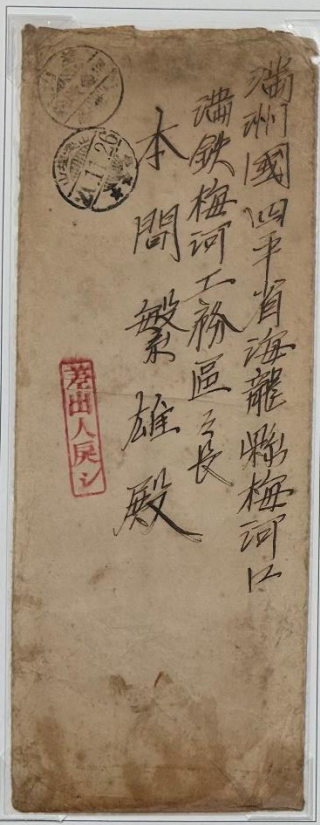 満洲國四平省海龍縣梅河口
満鉄梅河工務區々長
本間繁雄殿
差出人戻シ
11.26